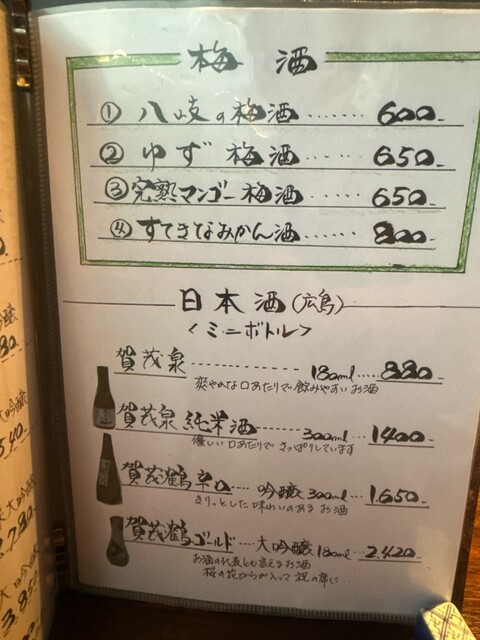 梅酒
① 八岐の梅酒‥‥‥ 600-
② ゆず 梅酒‥‥‥ 650-
③ 完熟マンゴー梅酒‥‥‥ 650-
④ すてきなみかん酒‥‥‥ 800-
日本酒(広島)
<ミニボトル>
賀茂泉 ------------ 180ml‥‥ 880-
爽やかな口あたりで飲みやすいお酒
賀茂泉 純米酒 ------ 300ml‥‥ 1400-
優しい口あたりで さっぱりしています
賀茂鶴辛口‥‥ 吟醸 300ml‥‥ 1,650-
きりっとした味わいのある お酒
賀茂鶴ゴールド --- 大吟醸 180ml‥‥ 2,420-
お酒の代表とも言えるお酒
桜の花びらが入って 祝の席に‥